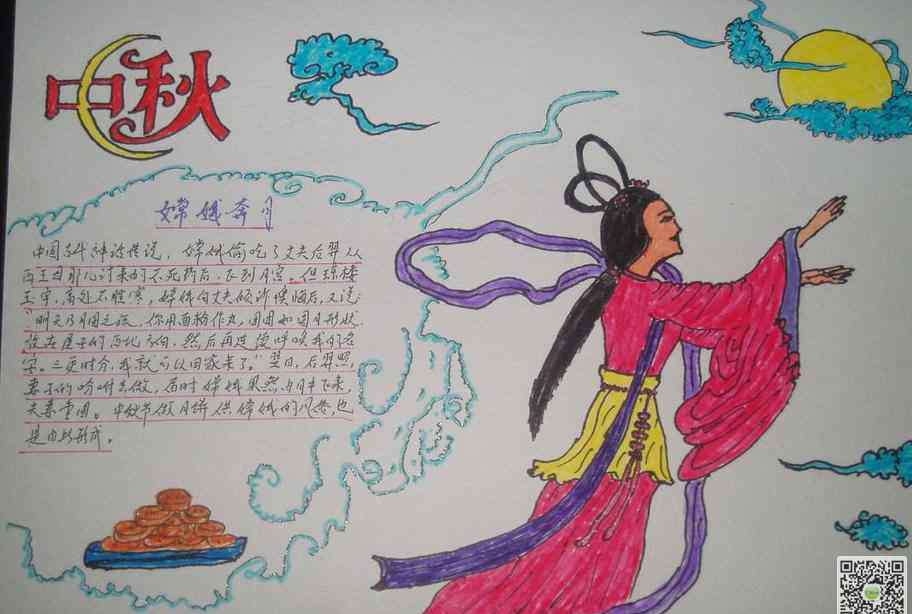 中秋
嫦娥奔月
中国古代神话传说,嫦娥偷吃了丈夫后羿从
西王母那儿讨来的不死药后,飞到月宫。但琼楼
玉宇,高处不胜寒,嫦娥向丈夫倾诉懊悔后,又说:
"明天乃月圆之夜,你用面粉作丸,团团如圆月形状,
放在屋子的西北方向,然后再连续呼唤我的名
字。三更时分,我就可以回家来了。"翌日,后羿照
妻子的吩咐去做,届时嫦娥果然由月中飞来,
夫妻重圆。中秋节做月饼供嫦娥的风俗,也
是由此形成。